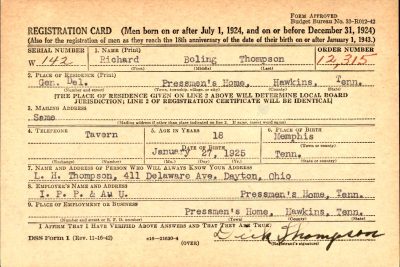 Form Approved
Budget Bureau No. 33-R012-42
REGISTRATION CARD—(Men born on or after July 1, 1924, and on or before December 31, 1924)
(Also for the registration of men as they reach the 18th anniversary of the date of their birth on or after January 1, 1943.)
SERIAL NUMBER 1. NAME (Print) ORDER NUMBER
W 142 Richard Boling Thompson 12,315
(First) (Middle) (Last)
2. PLACE OF RESIDENCE (Print)
Gen. Del. Pressmen's Home, Hawkins, Tenn.
(Number and street) (Town, township, village, or city) (County) (State)
[THE PLACE OF RESIDENCE GIVEN ON LINE 2 ABOVE WILL DETERMINE LOCAL BOARD
JURISDICTION; LINE 2 OF REGISTRATION CERTIFICATE WILL BE IDENTICAL]
3. MAILING ADDRESS
Same
(Mailing address if other than place indicated on line 2. If same, insert word same)
4. TELEPHONE 5. AGE IN YEARS 6. PLACE OF BIRTH
Tavern 18 Memphis
DATE OF BIRTH (Town or county)
January 1925 Tenn.
(Exchange) (Number) (Mo.) (Day) (Yr.) (State or country)
7. NAME AND ADDRESS OF PERSON WHO WILL ALWAYS KNOW YOUR ADDRESS
L. H. Thompson, 411 Delaware Ave. Dayton, Ohio
8. EMPLOYER'S NAME AND ADDRESS
I. P. P. & A. U. Pressmen's Home, Tenn.
9. PLACE OF EMPLOYMENT OR BUSINESS
Pressmen's Home, Hawkins, Tenn.
(Number and street or R. F. D. number) (Town) (County) (State)
I AFFIRM THAT I HAVE VERIFIED ABOVE ANSWERS AND THAT THEY ARE TRUE.
Dick Thompson
DSS Form 1 (Rev. 11-16-42) (OVER) (Registrant's signature)